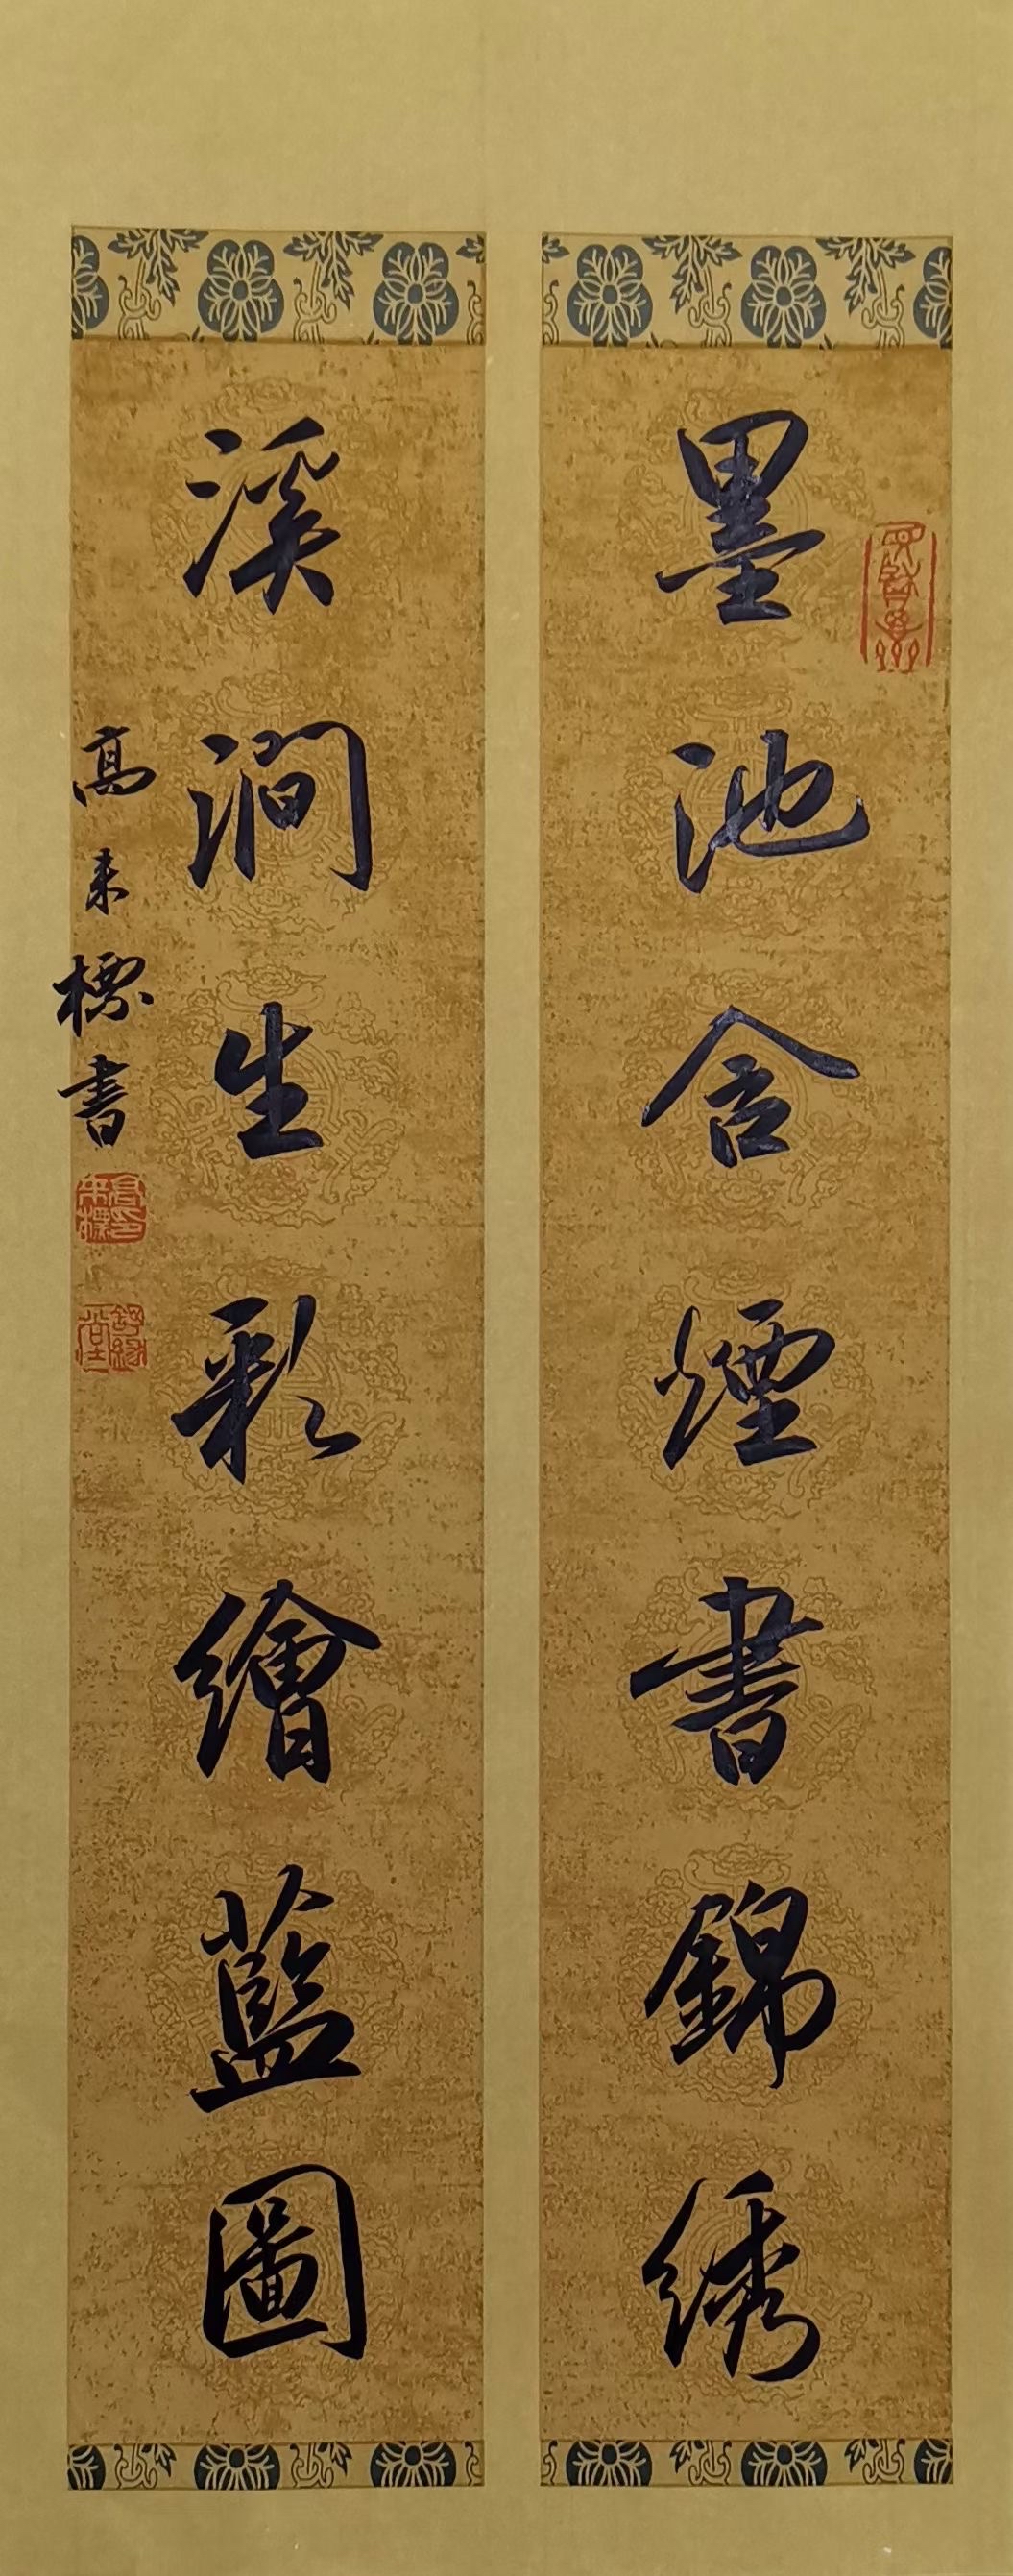 墨池含煙書錦绣
溪澗生彩繪藍圖
高來標書